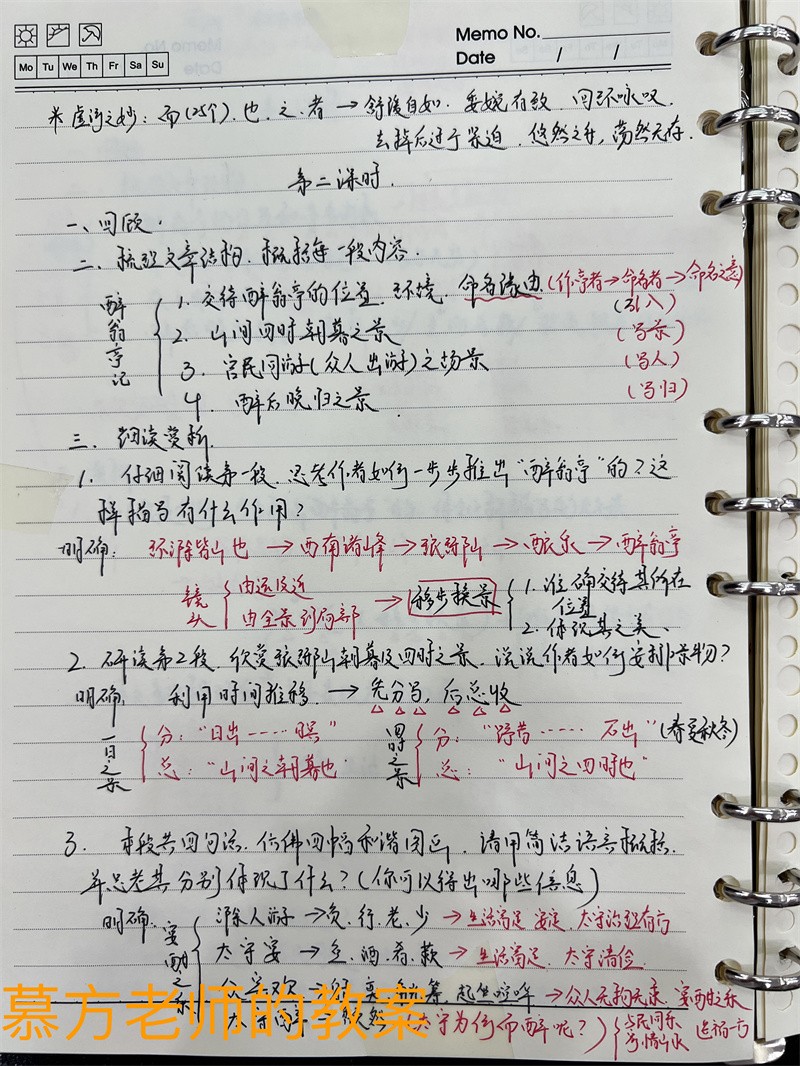 Memo No.
Date / /
Mo Tu We Th Fr Sa Su
※虚词之妙：而(25个)、也、之、者 → 舒缓自如、委婉有致、回环咏叹、
去掉后过于紧迫、悠然之乐，荡然无存。
第二课时.
一、回顾.
二、梳理文章结构、概括每一段内容.
醉翁亭记
1. 交待醉翁亭的位置、环境、命名缘由(作亭者→命名者→命名之意)
(引入)
2. 山间四时朝暮之景 (写景)
3. 官民同游(众人出游)之场景 (写人)
4. 醉后晚归之景 (写归)
三、细读赏析.
1. 仔细阅读第一段，思考作者如何一步步推出“醉翁亭”的？这
样描写有什么作用？
明确： 环滁皆山也 → 西南诸峰 → 琅琊山 → 酿泉 → 醉翁亭
镜头 由远及近 由全景到局部 → 移步换景
1. 准确交待其所在位置
2. 体现其之美、
2. 研读第2段，欣赏琅琊山朝暮及四时之景，说说作者如何安排景物？
明确： 利用时间推移、→ 先分写，后总收
一日之景 分：“日出……暝” 四时之景 分：“野芳……石出”(春夏秋冬)
总：“山间之朝暮也” 总：“山间之四时也”
3. 本段共四句话，仿佛四幅和谐图画，请用简洁语言概括，
并思考其分别体现了什么？(你可以得出哪些信息)
明确： 宴酣之乐
滁人游 → 负、行、老、少 → 生活富足 安定、太守治理有方
太守宴 → 鱼、酒、肴、蔌 → 生活富足、太守清俭
众宾欢 起坐喧哗 → 众人无拘无束
(太守为何而醉呢？) 与民同乐 寄情山水 造福一方
慕方老师的教案